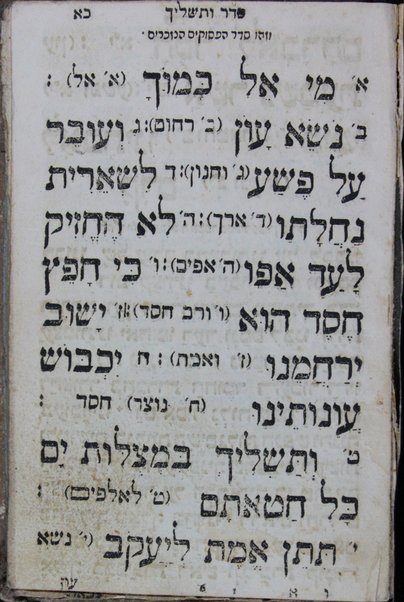 סדר ותשליך כא
וזהו סדר הפסוקים הנזכרים ·
א׳ מִי אֵל כָּמוֹךָ (א׳ אל) :
ב׳ נֹשֵׂא עָוֹן (ב׳ רחום): ג וְעוֹבֵר
עַל פֶּשַׁע (ג׳ וחנון): ד לִשְׁאֵרִית
נַחֲלָתוֹ (ד׳ ארך): ה׳ לֹא הֶחֱזִיק
לָעַד אַפּוֹ (ה׳ אפים): ו׳ כִּי חָפֵץ
חֶסֶד הוּא (ו׳ ורב חסד): ז׳ יָשׁוּב
יְרַחֲמֵנוּ (ז׳ ואמת): ח יִכְבּוֹשׁ
עֲוֹנוֹתֵינוּ (ח׳ נוצר) חסד :
ט׳ וְתַשְׁלִיךְ בִּמְצֻלוֹת יָם
כָּל חַטֹּאתָם (ט׳ לאלפים) :
י׳ תִּתֵּן אֱמֶת לְיַעֲקֹב (י׳ נשא
עון